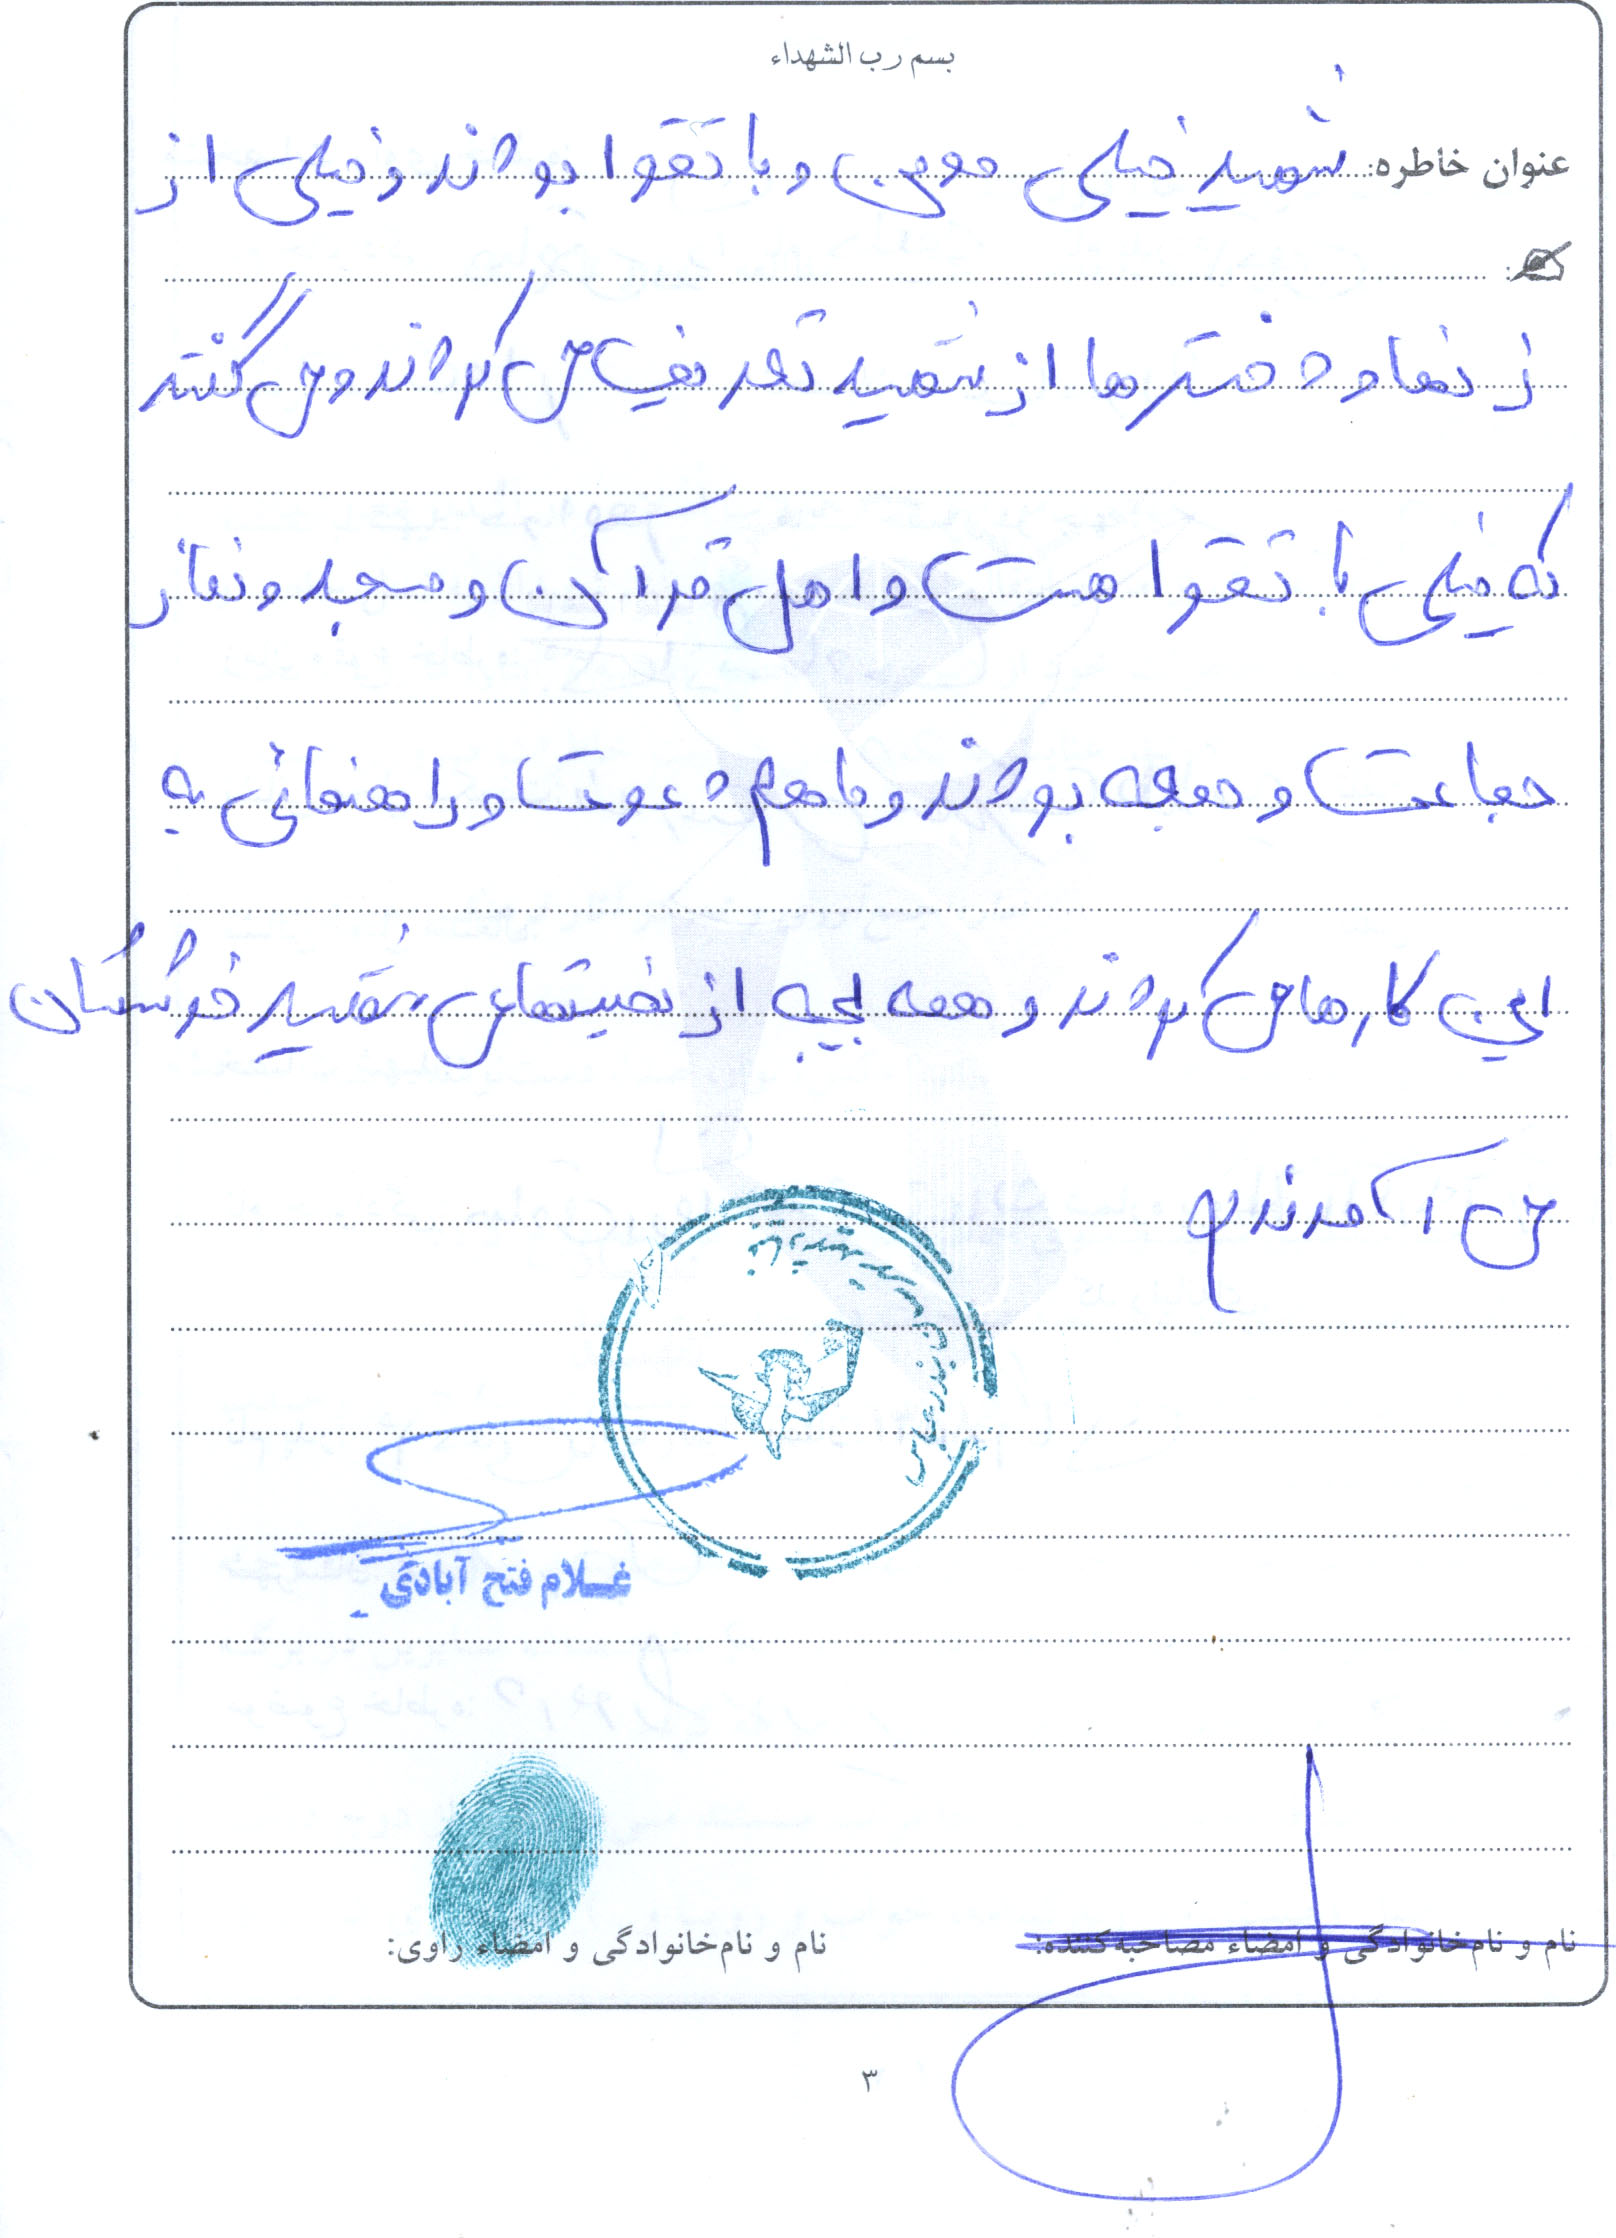 بسم رب الشهداء
عنوان خاطره: شهید خیلی مومن و با تقوا بودند و خیلی از
زنها و دخترها از شهید تعریف می کردند و می گفتند
که خیلی با تقوا هست و اهل قرآن و مسجد و نماز
جماعت و جمعه بودند و ما هم دعوت و راهنمائی به
این کارها می کردند و همه از نصیتهای شهید خوششان
می آمدند
بندرعباس
غلام فتح آبادی
نام و نام‌خانوادگی و امضاء مصاحبه‌کننده:
نام و نام‌خانوادگی و امضاء راوی:
۳